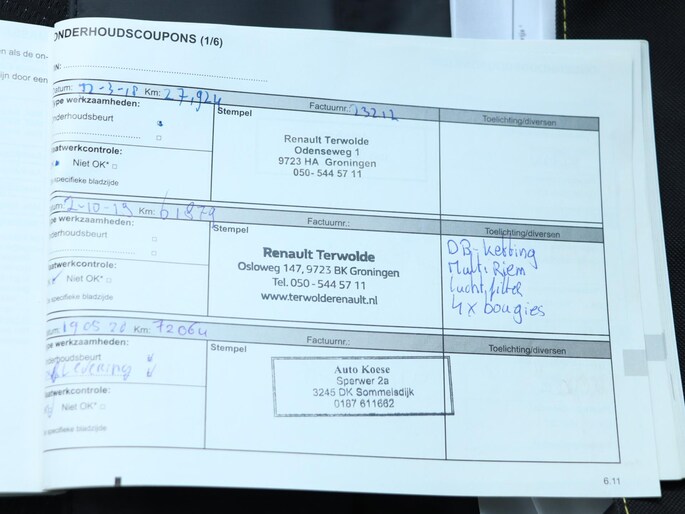 ONDERHOUDSCOUPONS (1/6)
en als de on-
ijn door een
IN:
atum: 12-3-18 Km: 27,924 Factuurnr.: 23212
Toelichting/diversen
ype werkzaamheden:
nderhoudsbeurt
Stempel
Renault Terwolde
Odenseweg 1
9723 HA Groningen
050- 544 57 11
aatwerkcontrole:
Niet OK*
specifieke bladzijde
um: 2-10-19 Km: 61879 Factuurnr.:
Toelichting/diversen
pe werkzaamheden:
derhoudsbeurt
Stempel
Renault Terwolde
Osloweg 147, 9723 BK Groningen
Tel. 050 - 544 57 11
www.terwolderenault.nl
DB-ketting
Multi Riem
luchtfilter
4x bougies
atwerkcontrole:
Niet OK*
specifieke bladzijde
um: 19 05 20 Km: 72064 Factuurnr.:
Toelichting/diversen
e werkzaamheden:
erhoudsbeurt
Levering
Stempel
Auto Koese
Sperwer 2a
3245 DK Sommelsdijk
0187 611662
atwerkcontrole:
Niet OK*
specifieke bladzijde
6.11